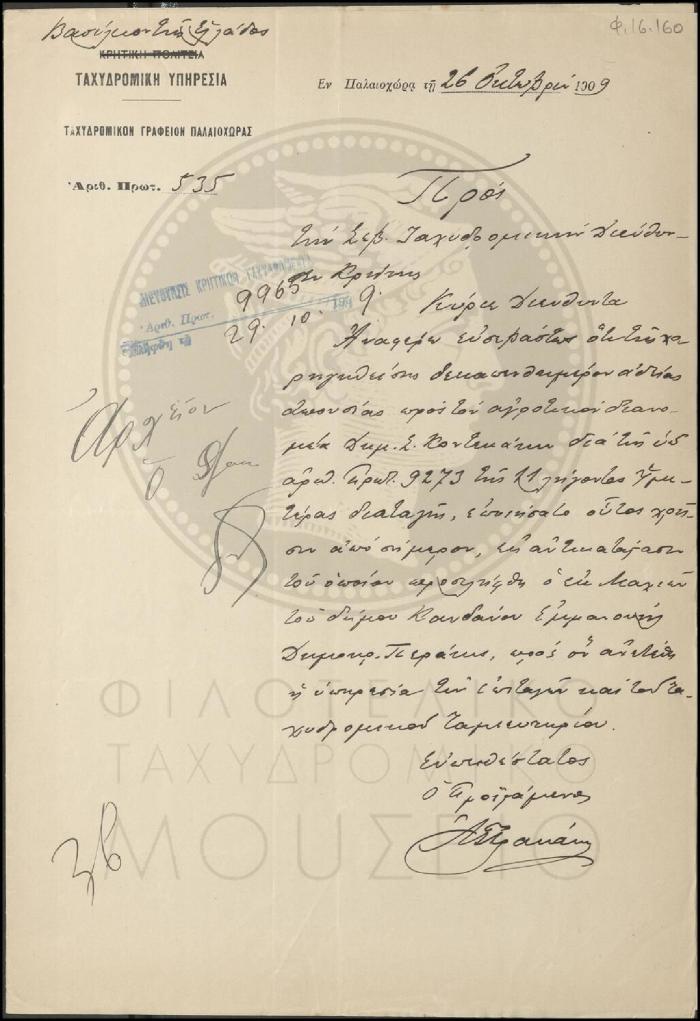 Φ.16.160
Βασίλειον της Ελλάδος
ΚΡΗΤΙΚΗ ΠΟΛΙΤΕΙΑ
ΤΑΧΥΔΡΟΜΙΚΗ ΥΠΗΡΕΣΙΑ
Εν Παλαιοχώρα τῇ 26 Οκτωβρίου 1909
ΤΑΧΥΔΡΟΜΙΚΟΝ ΓΡΑΦΕΙΟΝ ΠΑΛΑΙΟΧΩΡΑΣ
Ἀριθ. Πρωτ. 535
Προς
την Σεβ. Ταχυδρομικήν Διεύθυν-
σιν Κρήτης
ΔΙΕΥΘΥΝΣΙΣ ΚΡΗΤΙΚΩΝ ΤΑΧΥΔΡΟΜΕΙΩΝ
Ἀριθ. Πρωτ. 9965
29. 10. 1909.
Κύριε Διευθυντά
Αναφέρω ευσεβάστως ότι της χο-
ρηγηθείσης δεκαπενθημέρου αδείας
απουσίας προς τον αγροτικόν διανο-
μέα Δημ. Σ. Κοντεκάκην δια της υπ
αριθ. πρωτ. 9273 της 21 λήγοντος Υμε-
τέρας διαταγής, εποιήσατο ούτος χρή-
σιν από σήμερον, εις αντικατάστασιν
του οποίου προσελήφθη ο εκ
του δήμου Κανδάνου Εμμανουήλ
Περάκης, προς ον ανετέθη
η υπηρεσία των επιταγών και του Τα-
χυδρομικού Ταμιευτηρίου.
Αρχείον
Ευπειθέστατος
Ο Προϊστάμενος
ΦΙΛΟΤΕΛΙΚΟ
ΤΑΧΥΔΡΟΜΙΚΟ
ΜΟΥΣΕΙΟ